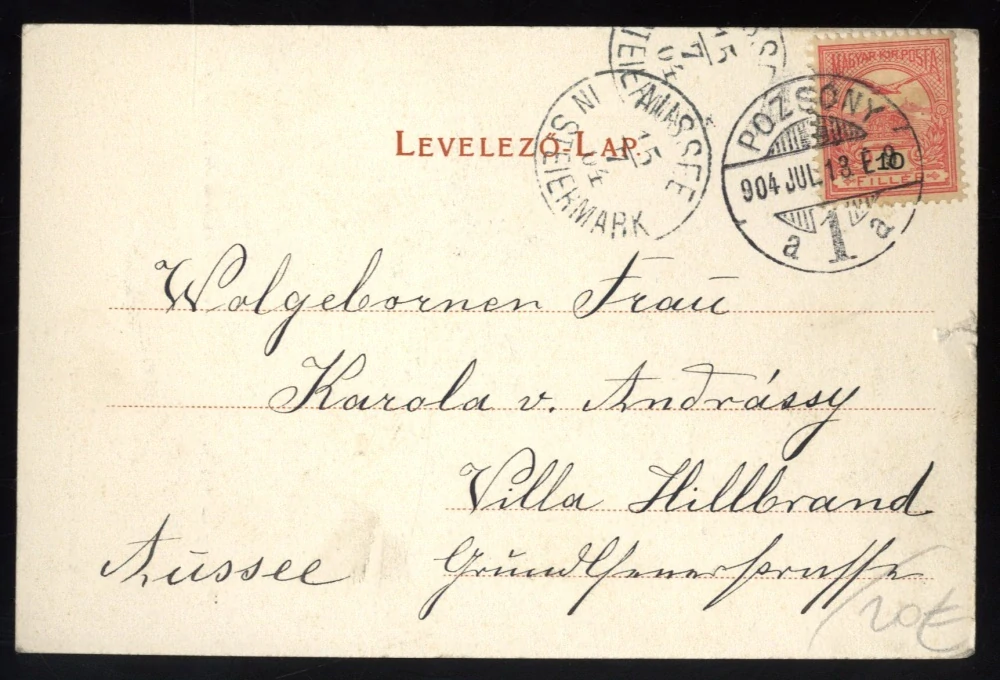 MAGYAR·KIR·POSTA
10
FILLÉR
POZSONY
904 JUL 13
a 1 a
15
7
04
AUSSEE
15
7
04
IN STEIERMARK
LEVELEZŐ-LAP.
Wolgebornen Frau
Karola v. Andrássy
Villa Hillbrand
Aussee